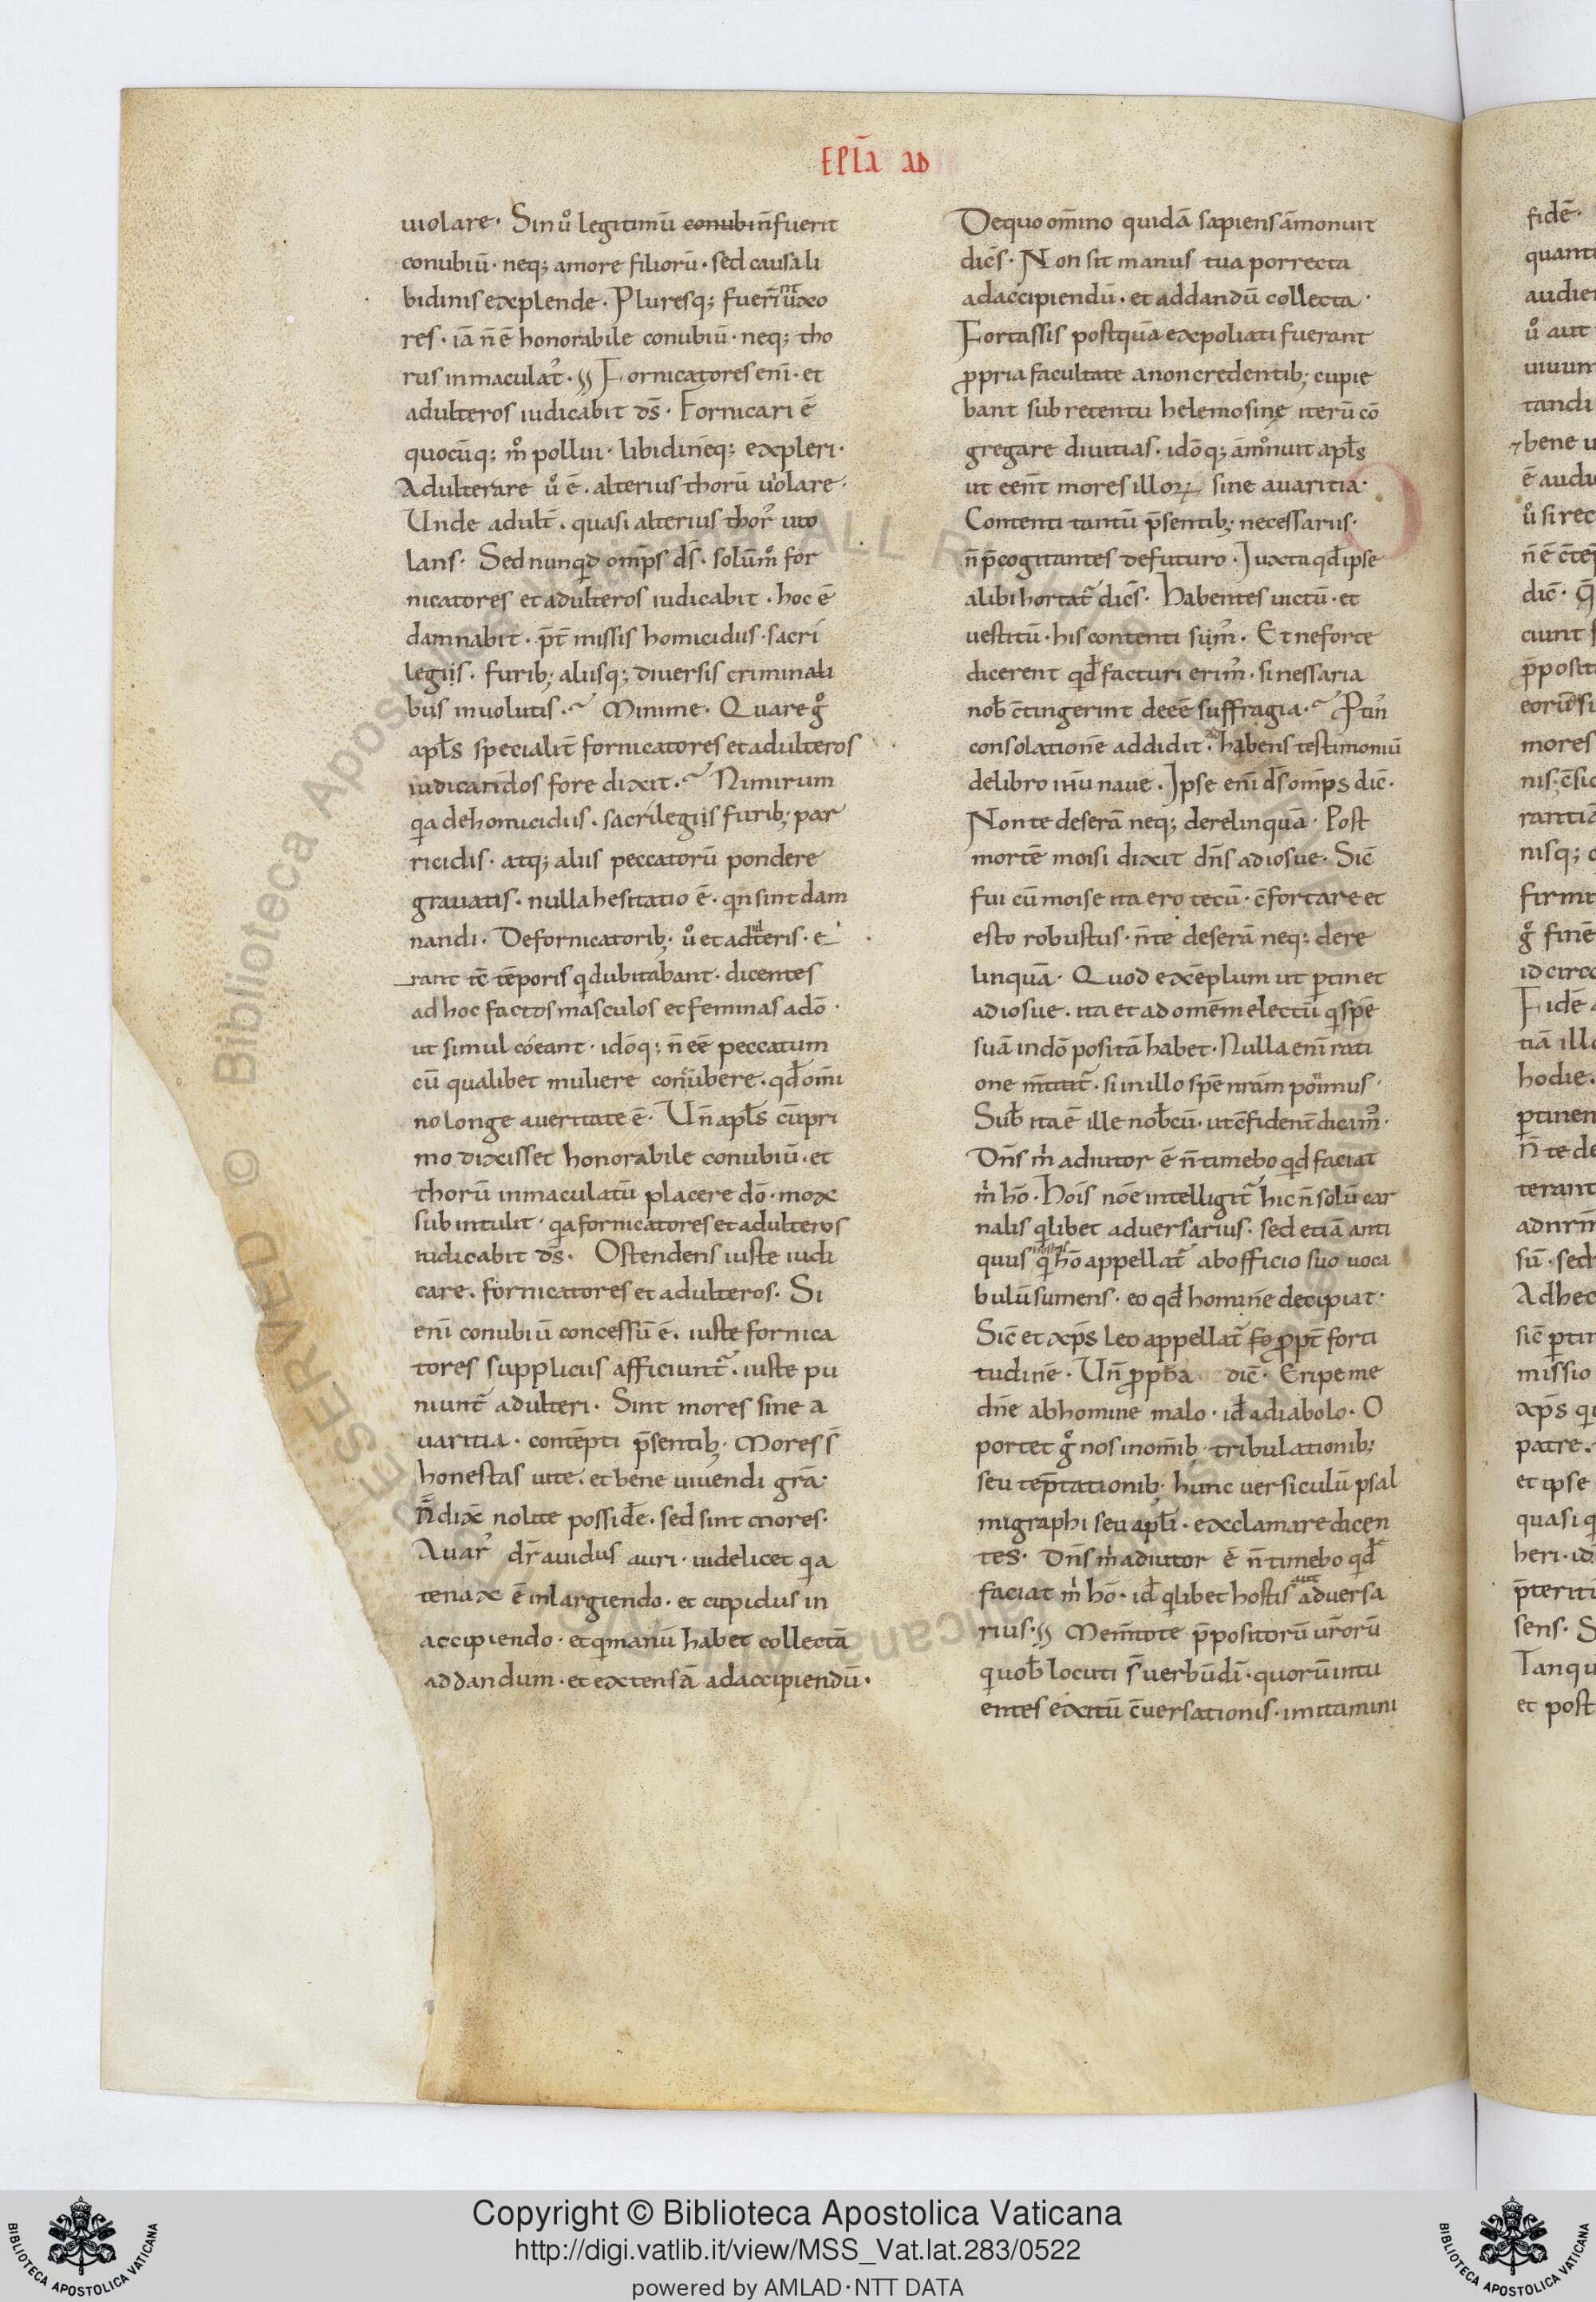 EPLA AD
uiolare · Sin ů legitimū conubiñ fuerit
conubiū · neq; amore filiorū · sed causa li
bidinis explende · Pluresq; fuerint uxo
res · iā n̄ ē honorabile conubiū · neq; tho
rus inmaculat᾿ · Fornicatores enī · et
adulteros iudicabit ds̄ · Fornicari ē
quocūq; m̊ pollui · libidinēq; expleri ·
Adulterare ů ē · alterius thorū uiolare ·
Unde adult̄ · quasi alterius thor᾿ uio
lans · Sed nunqd omp̄s ds̄ · solūm̊ for
nicatores et adulteros iudicabit · hoc ē
damnabit · p̄t missis homicidiis · sacri
legiis · furib; aliisq; diuersis criminali
bus inuolutis · Minime · Quare g̊
apłs specialit̄ fornicatores et adulteros
iudicandos fore dixit · Nimirum
qia de homicidiis · sacrilegiis furib; par
ricidis · atq; aliis peccatorū pondere
grauatis · nulla hesitatio ē · qin sint dam
nandi · De fornicatorib; ů et adulteris · e
rant tc̄ tēporis qi dubitabant · dicentes
ad hoc factos masculos et feminas a dō ·
ut simul coeant · idōq; n̄ eē peccatum
cū qualibet muliere concubere · qd̄ omī
no longe a ueritate ē · Un̄ apłs cū pri
mo dixisset honorabile conubiū · et
thorū inmaculatū placere dō · mox
subintulit · qia fornicatores et adulteros
iudicabit ds̄ · Ostendens iuste iudi
care · fornicatores et adulteros · Si
enī conubiū concessū ē · iuste fornica
tores suppliciis afficiunt᷒ · iuste pu
niunt᷒ adulteri · Sint mores sine a
uaritia · contēpti p̄sentib; · Mores s̄
honestas uite · et bene uiuendi grā ·
N̄ dix̄ nolite possid̄e · sed sint mores ·
Auar᾿ dr̄ auidus auri · uidelicet qia
tenax ē in largiendo · et cupidus in
accipiendo · et qi manū habet collectā
ad dandum · et extensā ad accipiendū ·
De quo omīno quidā sapiens āmonuit
dicēs · Non sit manus tua porrecta
ad accipiendū · et ad dandū collecta ·
Fortassis postquā expoliati fuerant
ppria facultate a non credentib; cupie
bant sub retentu helemosinę iterū cō
gregare diuitias · idōq; āmonuit apłs
ut eēnt mores illoꝝ sine auaritia ·
Contenti tantū p̄sentib; necessariis ·
n̄ p̄cogitantes de futuro · Iuxta qd̄ ipse
alibi hortat᷒ dicēs · Habentes uictū · et
uestitū · his contenti sūm᾿ · Et ne forte
dicerent qd̄ facturi erim᾿ · si nessaria
nob̄ c̄tingerint deeē suffragia · Ptin᾿
consolationē addidit · habens testimoniū
de libro ihū naue · Ipse enī ds̄ omp̄s dic̄ ·
Non te deserā neq; derelinquā · Post
mortē moisi dixit dn̄s ad iosue · Sic̄
fui cū moise ita ero tecū · c̄fortare et
esto robustus · n̄ te deserā neq; dere
linquā · Quod exēplum ut ptin et
ad iosue · ita et ad omēm electū qi spē
suā in dō positā habet · Nulla enī rati
one · si in illo spē nrām ponimus ·
Sub̄ ita ē ille nob̄cū · ut c̄fident̄ dicam᾿ ·
Dn̄s m̓ adiutor ē n̄ timebo qid faciat
m̓ hō · Hois noē intelligit᷒ hic n̄ solū car
nalis qilibet aduersarius · sed etiā anti
quus hostis qi hō appellat᷒ ab officio suo uoca
bulū sumens · eo qd̄ hominē decipiat ·
Sic̄ et xp̄s leo appellat᷒ ppt̄ forti
tudinē · Un̄ ppha dic̄ · Eripe me
dn̄e ab homine malo · id̄ a diabolo · O
portet g̊ nos in omīb; tribulationib;
seu tep̄tationib; hunc uersiculū psal
migraphi seu apłi · exclamare dicen
tes · Dn̄s m̓ adiutor ē n̄ timebo qid
faciat m̓ hō · id̄ qilibet hostis aut aduersa
rius · Mem̄tote p̄positorū ur̄orū
qi uob̄ locuti s̄ uerbū dī · quorū intu
entes exitū c̄uersationis · imitamini
fidē ·
quanti
audie
ů aut
uiuun
tandi
bene u
ē audi
ů si rec
n̄ ē c̄te
dic̄ ·
ciunt
p̄posit
eorū si
mores
nis · c̄sic
rantia
nisq;
firmit
g̊ finē
idcirco
Fidē
tiā illo
hodie ·
ptinen
n̄ te de
terant
ad nrm̄
sū · sed
Adhec
sic̄ ptin
missio
xp̄s qi
patre ·
et ipse
quasi q
heri · id
p̄teriti
sens · S
Tanqu
et post
Copyright © Biblioteca Apostolica Vaticana
http://digi.vatlib.it/view/MSS_Vat.lat.283/0522
powered by AMLAD·NTT DATA
BIBLIOTECA APOSTOLICA VATICANA
BIBLIOTECA APOSTOLICA VATICANA